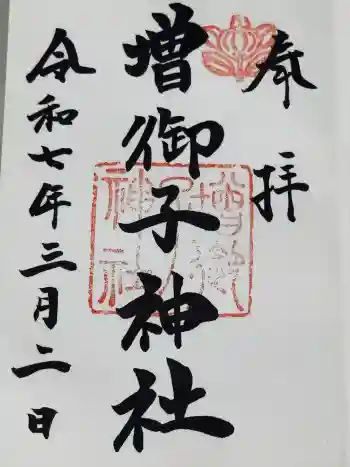 奉拝
増御子神社
令和七年三月二日